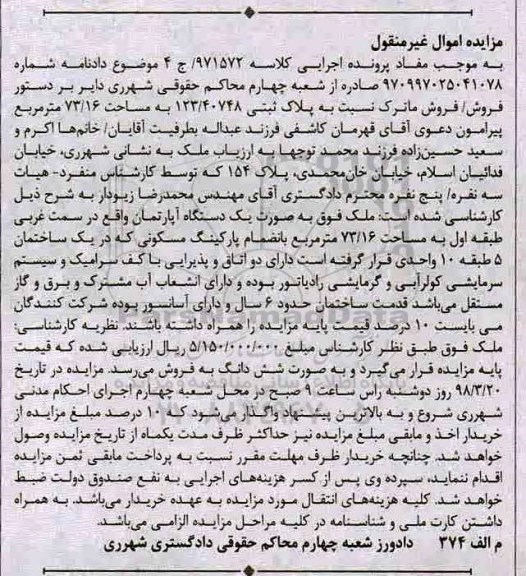 مزایده اموال غیرمنقول
به موجب مفاد پرونده اجرایی کلاسه ۹۷۱۵۷۲/ ج ۴ موضوع دادنامه شماره
۹۷۰۹۹۷۰۲۵۰۴۱۰۷۸ صادره از شعبه چهارم محاکم حقوقی شهرری دایر بر دستور
فروش/ فروش ماترک نسبت به پلاک ثبتی ۱۲۳/۴۰۷۴۸ به مساحت ۷۳/۱۶ مترمربع
پیرامون دعوی آقای قهرمان کاشفی فرزند عبداله بطرفیت آقایان/ خانم‌ها اکرم و
سعید حسین‌زاده فرزند محمد توجها به ارزیاب ملک به نشانی شهرری، خیابان
فدائیان اسلام، خیابان خان‌محمدی، پلاک ۱۵۴ که توسط کارشناس منفرد- هیات
سه نفره/ پنج نفره محترم دادگستری آقای مهندس محمدرضا زیودار به شرح ذیل
کارشناسی شده است: ملک فوق به صورت یک دستگاه آپارتمان واقع در سمت غربی
طبقه اول به مساحت ۷۳/۱۶ مترمربع بانضمام پارکینگ مسکونی که در یک ساختمان
۵ طبقه ۱۰ واحدی قرار گرفته است دارای دو اتاق و پذیرایی با کف سرامیک و سیستم
سرمایشی کولرآبی و گرمایشی رادیاتور بوده و دارای انشعاب آب مشترک و برق و گاز
مستقل می‌باشد قدمت ساختمان حدود ۶ سال و دارای آسانسور بوده شرکت کنندگان
می بایست ۱۰ درصد قیمت پایه مزایده را همراه داشته باشند. نظریه کارشناسی:
ملک فوق طبق نظر کارشناس مبلغ ۵/۱۵۰/۰۰۰/۰۰۰ ریال ارزیابی شده که قیمت
پایه مزایده قرار می‌گیرد و به صورت شش دانگ به فروش می‌رسد. مزایده در تاریخ
۹۸/۳/۲۰ روز دوشنبه راس ساعت ۹ صبح در محل شعبه چهارم اجرای احکام مدنی
شهرری شروع و به بالاترین پیشنهاد واگذار می‌شود که ۱۰ درصد مبلغ مزایده از
خریدار اخذ و مابقی مبلغ مزایده نیز حداکثر ظرف مدت یکماه از تاریخ مزایده وصول
خواهد شد. چنانچه خریدار ظرف مهلت مقرر نسبت به پرداخت مابقی ثمن مزایده
اقدام ننماید، سپرده وی پس از کسر هزینه‌های اجرایی به نفع صندوق دولت ضبط
خواهد شد. کلیه هزینه‌های انتقال مورد مزایده به عهده خریدار می‌باشد. به همراه
داشتن کارت ملی و شناسنامه در کلیه مراحل مزایده الزامی می‌باشد.
م الف ۳۷۴ دادورز شعبه چهارم محاکم حقوقی دادگستری شهرری